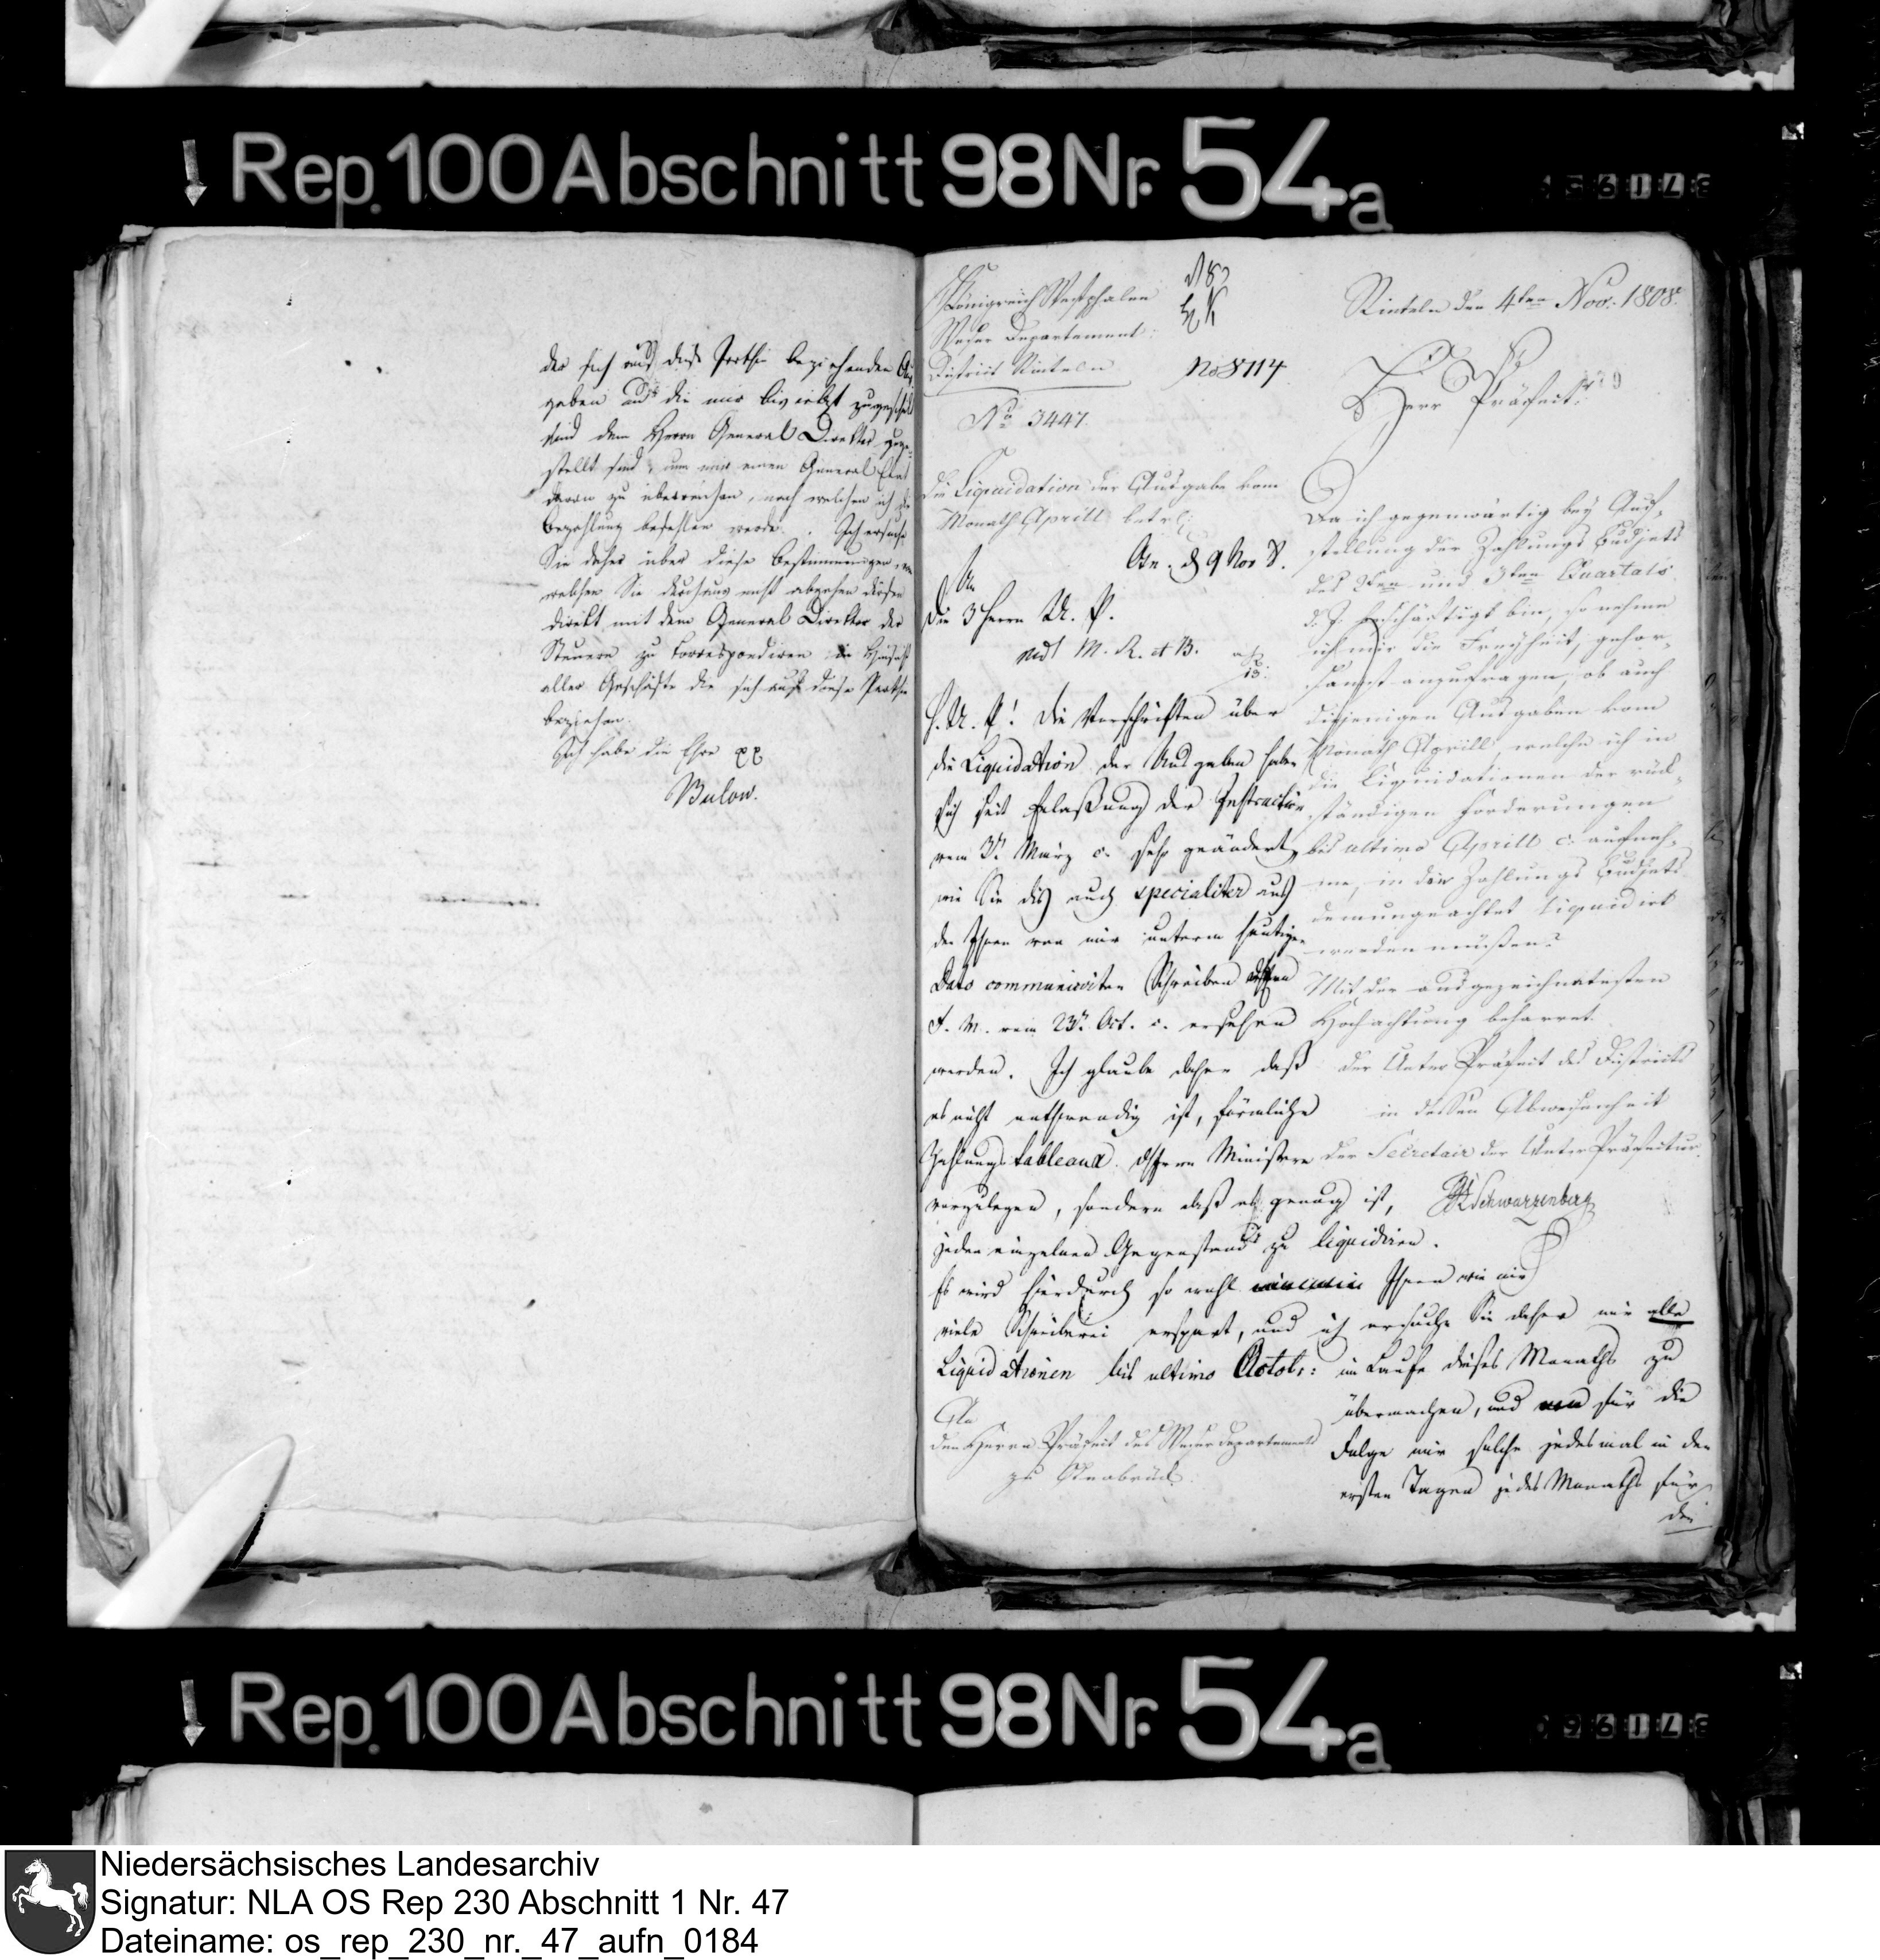 Rep. 100 Abschnitt 98 Nr. 54a
der sich auf diese Parthie beziehenden Aus
gaben und die mir bis jetzt zugeschickt
sind dem Herrn General Direktor zuge-
stellt sind, um mir einen General Etat
davon zu überreichen, nach welchen ich die
Bezahlung befehlen werde. Ich ersuche
Sie daher über diese Bestimmungen, von
welchen Sie durchaus nicht abgehen dürfen
direkt mit dem General Direktor der
Steuern zu correspondiren in Hinsicht
aller Geschäfte die sich auf diese Parthie
beziehen.
Ich habe die Ehre
Bulow.
Königreich Westphalen
Weser Departement.
District Rinteln
No 8114
No 3447.
Rinteln den 4ten Nov. 1808.
Herr Präfect!
Die Liquidation der Ausgabe vom
Monath Aprill betr.
Da ich gegenwärtig bey Auf-
stellung der Zahlungs Budjets
des 2ten und 3ten Quartals
d. J. beschäftigt bin, so nehme
ich mir die Freyheit, gehor-
samst anzufragen, ob auch
diejenigen Ausgaben vom
Monath Aprill, welche ich in
die Liquidationen der rück-
ständigen Forderungen
bis ultimo Aprill c. aufneh-
me, in die Zahlungs Budjets
demungeachtet liquidirt
werden müßen?
Mit der ausgezeichnetesten
Hochachtung beharret
der Unter Präfect des Districts
in dessen Abwesenheit
der Secretair der Unter Präfectur.
Schwarzenberg
Osn. d 9 Nov 8.
An
die 3 Herrn U. P.
M. R. et B.
H. U. P! Die Vorschriften über
die Liquidation der Ausgaben haben
sich seit Erlaßung der Instruction
vom 3n März c. sehr geändert,
wie Sie dies auch specialiter aus
den Ihnen von mir unterm heutigen
Dato communicirten Schreiben
F. M. vom 23n Oct. c. ersehen
werden. Ich glaube daher daß
es nicht nothwendig ist, förmliche
Zahlungs tableaux Ministern
vorzulegen, sondern daß es genug ist,
jeden einzelnen Gegenstand zu liquidiren.
Es wird hierdurch so wohl Ihnen wie mir
viele Schreiberei erspart, und ich ersuche Sie daher mir alle
Liquidationen bis ultimo Octobr: im Laufe dieses Monaths zu
übermachen, und für die
Folge mir solche jedesmal in den
ersten Tagen jedes Monaths für
die
An
den Herrn Präfect des Weserdepartements
zu Osnabrück.
Rep. 100 Abschnitt 98 Nr. 54a
Niedersächsisches Landesarchiv
Signatur: NLA OS Rep 230 Abschnitt 1 Nr. 47
Dateiname: os_rep_230_nr._47_aufn_0184